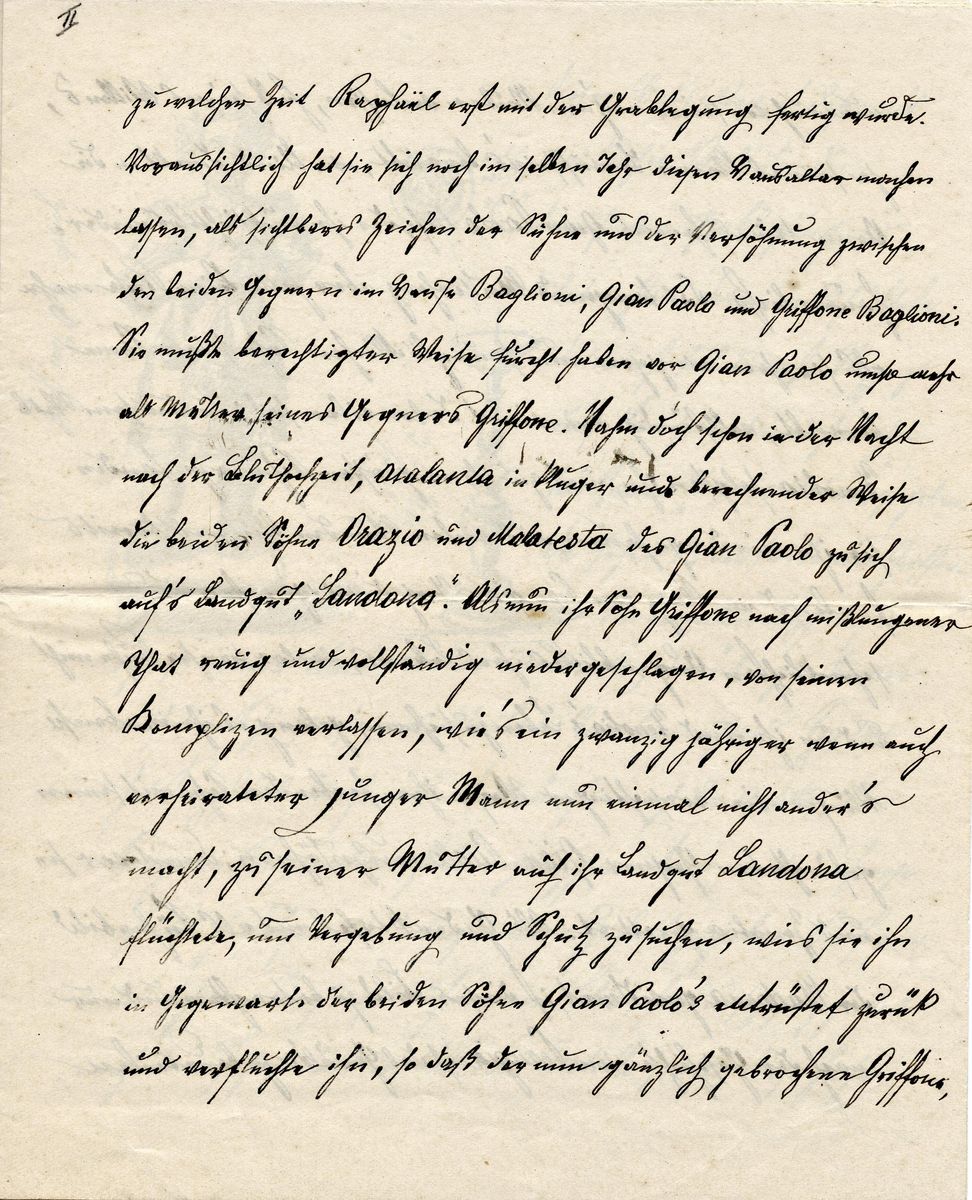 II
zu welcher Zeit Raphäel erst mit der Grablegung fertig wurde.
Voraussichtlich hat sie sich noch im selben Jahr diesen Hausaltar machen
lassen, als sichtbares Zeichen der Sühne und der Versöhnung zwischen
den beiden Gegnern im Hause Baglioni, Gian Paolo und Griffone Baglioni.
Sie mußte berechtigter Weise furcht haben vor Gian Paolo umso mehr
als Mutter seines Gegners Griffone. Nahm doch schon in der Nacht
nach der Bluthochzeit, Atalanta in kluger und berechnender Weise
die beiden Söhne Orazio und Malatesta des Gian Paolo zu sich
auf's Landgut „Landona“. Als nun ihr Sohn Griffone nach mißlungener
That reuig und vollständig niedergeschlagen, von seinen
Komplizen verlassen, wie's ein zwanzig jähriger wenn auch
verheirateter junger Mann nun einmal nicht ander's
macht, zu seiner Mutter auf ihr Landgut Landona
flüchtete, um Vergebung und Schutz zu suchen, wies sie ihn
in Gegenwart der beiden Söhne Gian Paolo's entrüstet zurük
und verfluchte ihn, so daß der nun gänzlich gebrochene Griffone,